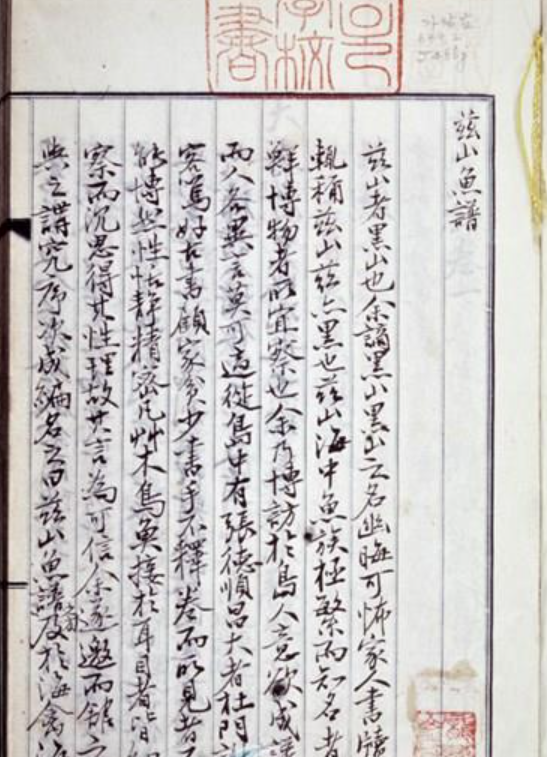 茲山魚譜
茲山者黑山也余謫黑山黑山之名幽晦可怖家人書牘
輒稱茲山茲亦黑也茲山海中魚族極繁而知名者
鮮博物者所宜察也余乃博訪於島人意欲成譜
而人各異言莫可適從島中有張德順昌大者杜門
客篤好古書顧家貧少書手不釋卷而所見者
能博然性恬靜精密凡艸木鳥魚接於耳目者皆
察而沉思得其性理故其言為可信余遂邀而館之
與之講究序次成編名之曰茲山魚譜旁及於海禽